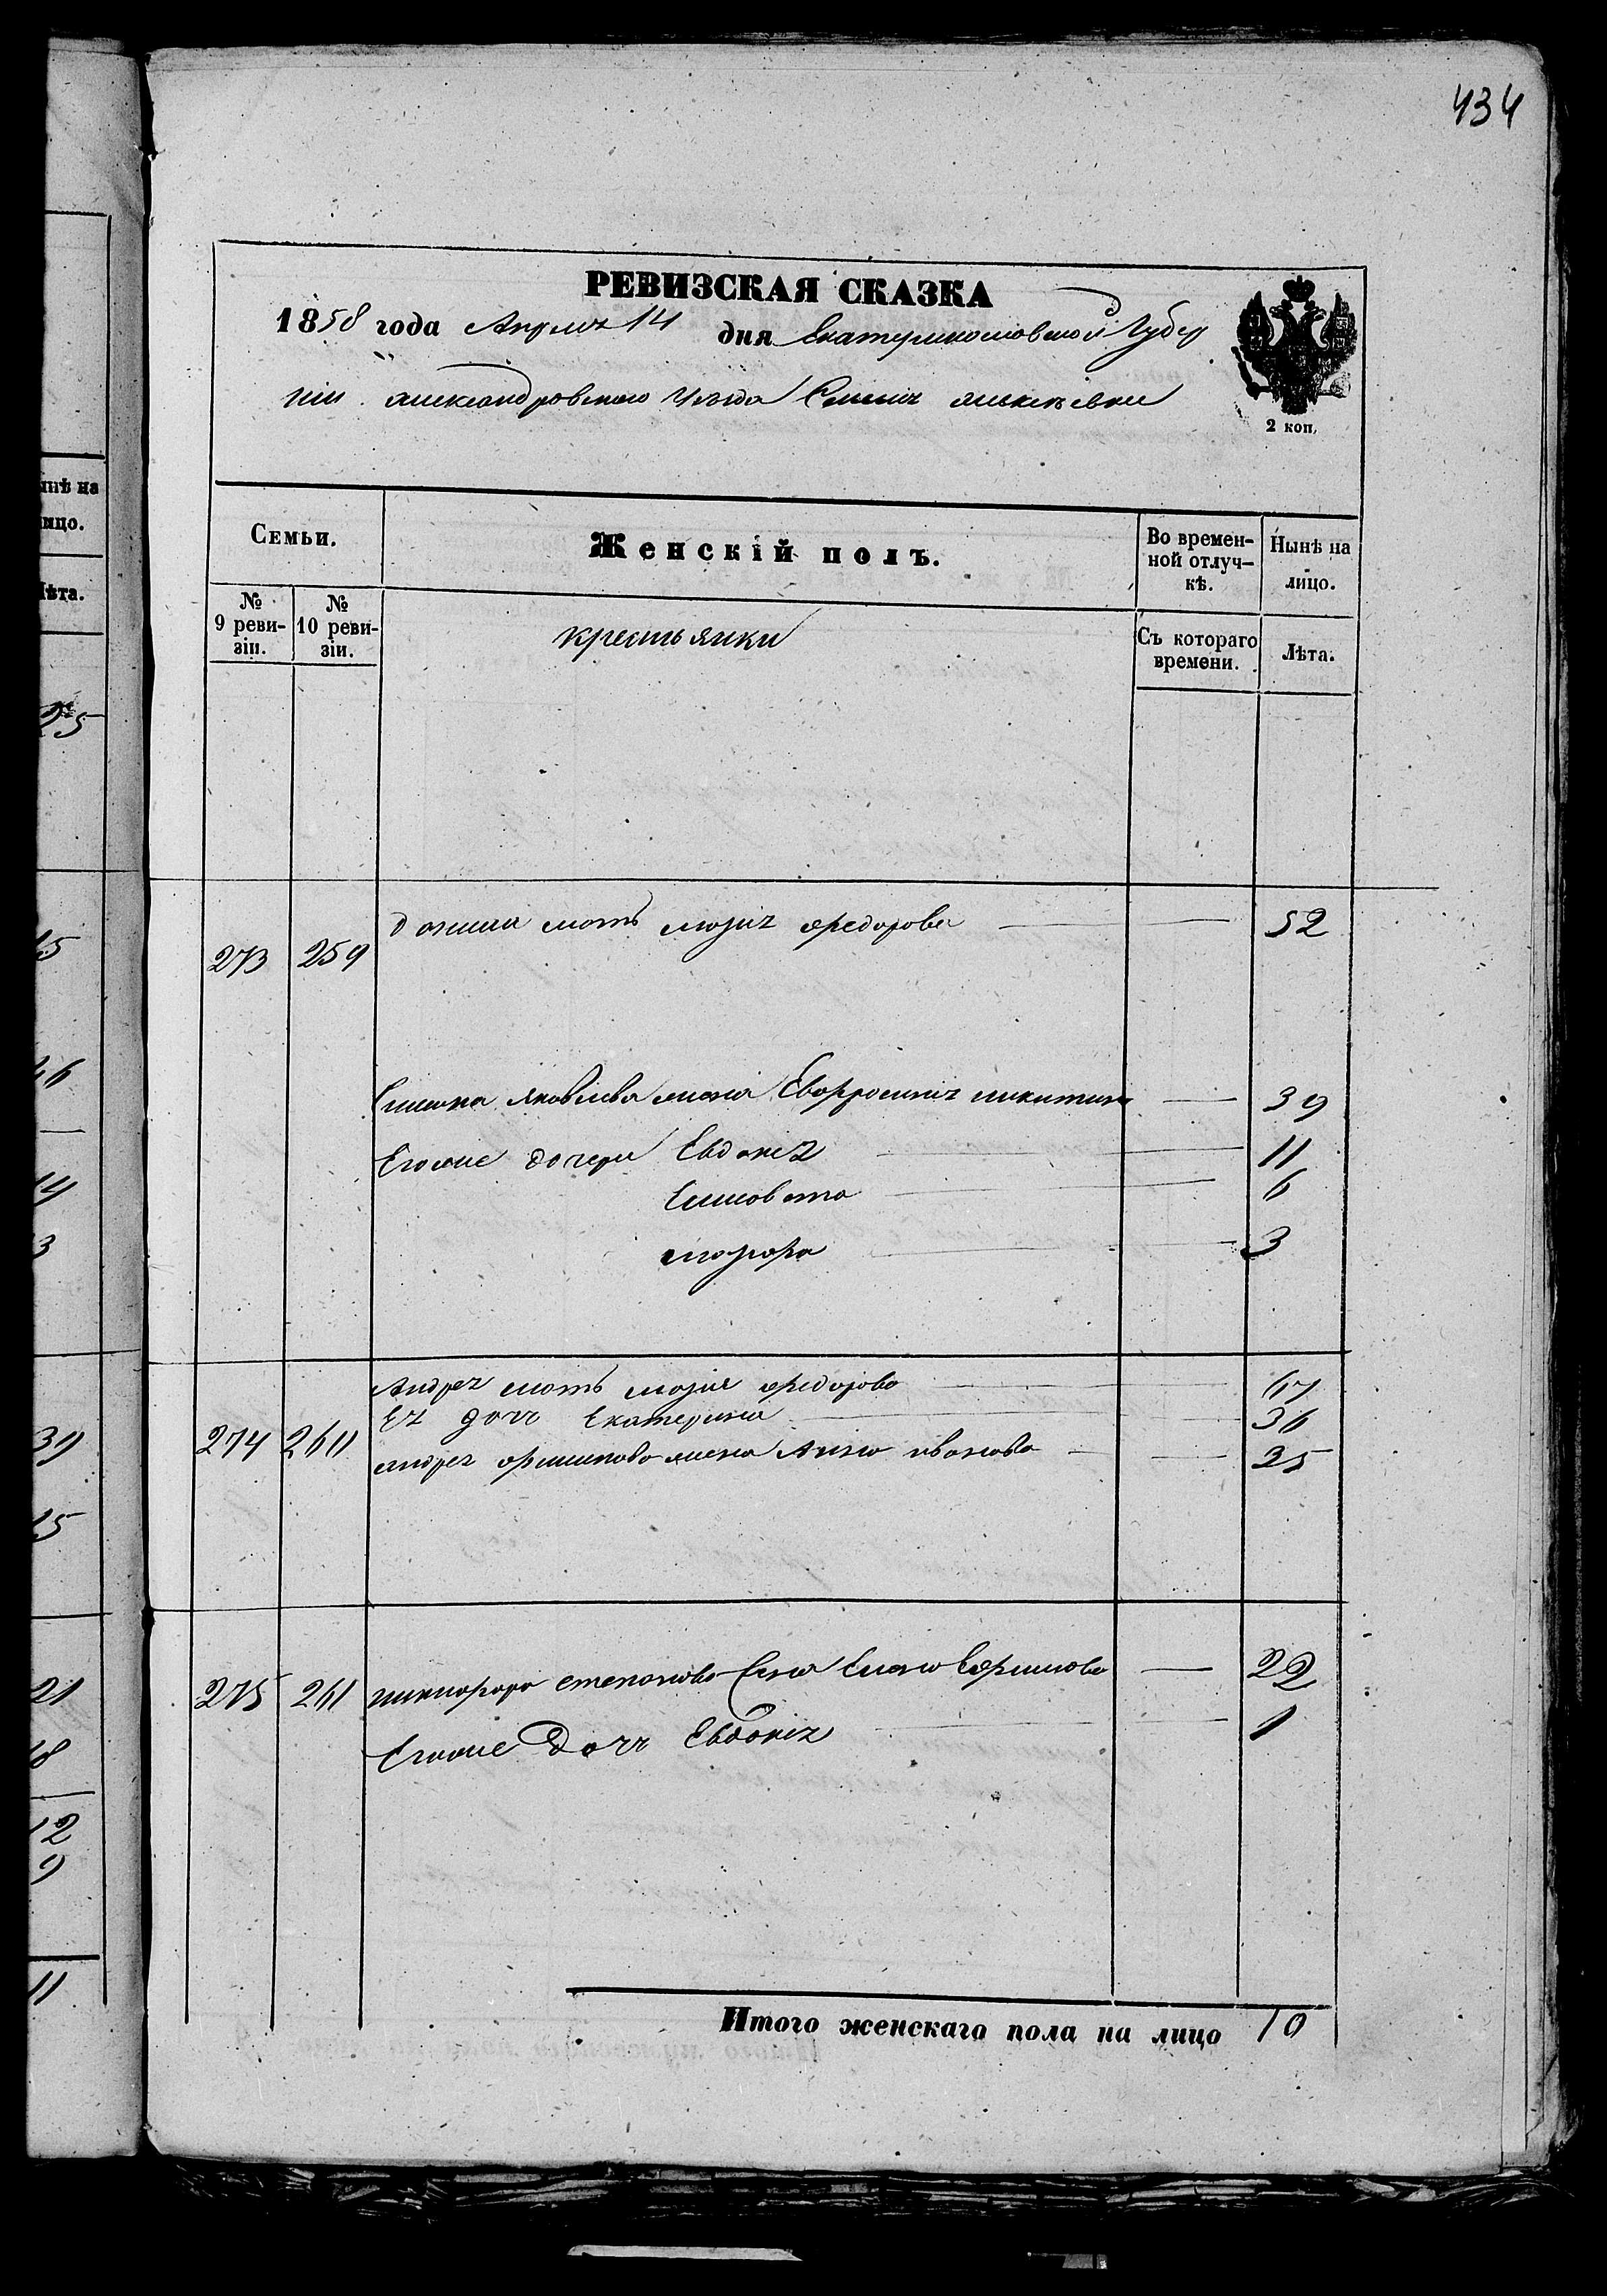 434
РЕВИЗСКАЯ СКАЗКА
1858 года Апреля 14 дня Екатеринославской Губер
ніи Александровского Уезда Селенія
2 коп.
Семьи.
Женскій полъ.
Во времен-
ной отлуч-
кѣ.
Нынѣ на
лицо.
№
9 реви-
зіи.
№
10 реви-
зіи.
крестьянки
Съ котораго
времени.
Лѣта.
273 259 мать марія федорова 52
яковлева жена Евфросинія никитина 39
Его же дочери Евдокія 11
Елисовета 6
марфа 3
274 260 Андрея мать марія федорова 67
Ея дочь Екатерина 36
андрея филипова жена Анна иванова 25
275 261 никифора степанова жена Елена Ефимова 22
Его же дочь Евдокія 1
Итого женскаго пола на лицо 10
нынѣ на
лицо.
Лѣта.
25
15
46
14
3
39
15
21
18
12
9
11